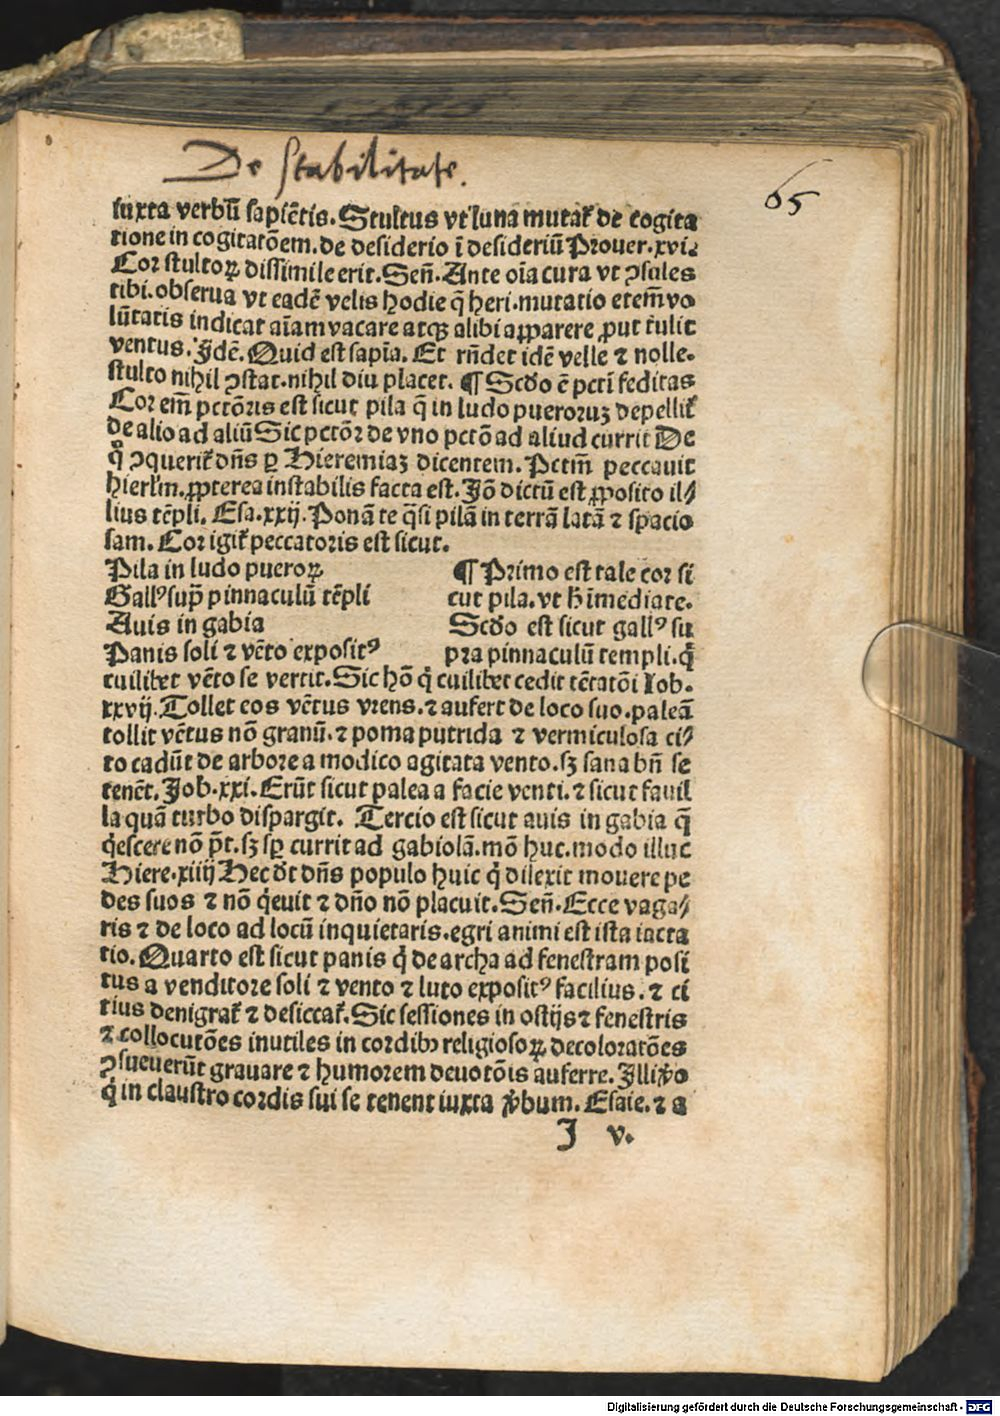 De stabilitate.
65
iuxta verbū sapiētis. Stultus vt luna mutať de cogita
tione in cogitatōem. de desiderio ī desideriū Prouer. xvi.
Cor stultoꝝ dissimile erit. Señ. Ante oīa cura vt ꝯsules
tibi. obserua vt eadē velis hodie q̄ heri. mutatio etem̄ vo
lūtatis indicat aīam vacare atqꝫ alibi apparere ꝓut tulit
ventus. Jdē. Quid est sapīa. Et rn̄det idē velle ⁊ nolle.
stulto nihil ꝯstat. nihil diu placet. ¶ Scďo ē pctī feditas
Cor em̄ pctōris est sicut pila q̄ in ludo pueroruꝫ depelliť
de alio ad aliū Sic pctōꝛ de vno pctō ad aliud currit De
q̊ ꝯqueriť dn̄s ꝑ Hieremiaꝫ dicentem. Pctm̄ peccauit
hierľm. ꝓpterea instabilis facta est. Jō dictū est ꝓposito il⸗
lius tēpli. Esa. xxij. Ponā te q̄si pilā in terrā latā ⁊ spacio
sam. Cor igiť peccatoris est sicut.
Pila in ludo pueroꝝ
Gallꝰ sup̄ pinnaculū tēpli
Auis in gabia
Panis soli ⁊ vēto expositꝰ
¶ Primo est tale cor si
cut pila. vt h̄ imediate.
Scďo est sicut gallꝰ su
pra pinnaculū templi. q̇
cuilibet vēto se vertit. Sic hō q̇ cuilibet cedit tētatōi Iob.
xxvij. Tollet eos vētus vrens. ⁊ aufert de loco suo. paleā
tollit vētus nō granū. ⁊ poma putrida ⁊ vermiculosa ci⸗
to cadūt de arbore a modico agitata vento. sꝫ sana bn̄ se
tenēt. Job. xxi. Erūt sicut palea a facie venti. ⁊ sicut fauil
la quā turbo dispargit. Tercio est sicut auis in gabia q̄
q̇escere nō p̄t. sꝫ sꝑ currit ad gabiolā. mō huc. modo illuc
Hiere. xiiij Hec ďt dn̄s populo huic q̇ dilexit mouere pe
des suos ⁊ nō q̇euit ⁊ dn̄o nō placuit. Señ. Ecce vaga⸗
ris ⁊ de loco ad locū inquietaris. egri animi est ista iacta
tio. Quarto est sicut panis q̇ de archa ad fenestram posi
tus a venditore soli ⁊ vento ⁊ luto expositꝰ facilius. ⁊ ci
tius denigrať ⁊ desiccať. Sic sessiones in ostijs ⁊ fenestris
⁊ collocutōes inutiles in cordibꝫ religiosoꝝ decoloratōes
ꝯsueuerūt grauare ⁊ humorem deuotōis auferre. Jlli ꝟo
q̇ in claustro cordis sui se tenent iuxta ꝟbum. Esaie. ⁊ a
J v.
Digitalisierung gefördert durch die Deutsche Forschungsgemeinschaft - DFG